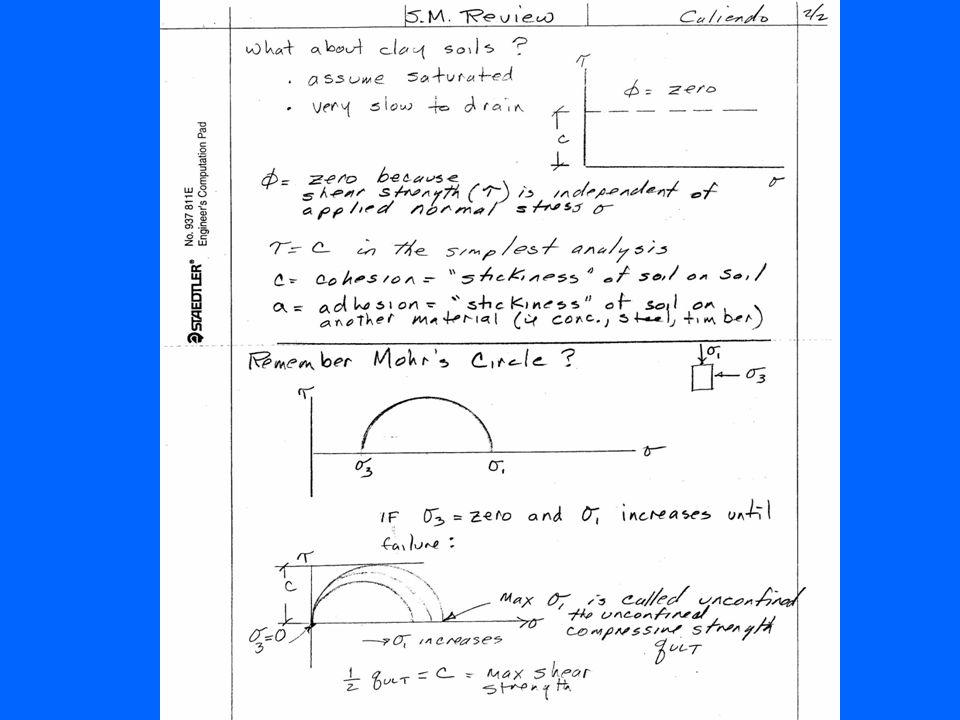 S.M. Review
Caliendo
2/2
No. 937 811E
Engineer's Computation Pad
STAEDTLER®
What about clay soils ?
· assume saturated
· very slow to drain
τ
ϕ = zero
c
σ
ϕ = zero because
shear strength (τ) is independent of
applied normal stress σ
τ = c in the simplest analysis
c = cohesion = "stickiness" of soil on soil
a = adhesion = "stickiness" of soil on
another material (ie conc., steel, timber)
Remember Mohr's Circle ?
σ1
σ3
τ
σ
σ3
σ1
IF σ3 = zero and σ1 increases until
failure :
τ
c
σ3=0
σ
→ σ1 increases
Max σ1 is called unconfined
the unconfined
compressive strength
qULT
1/2 qULT = C = max shear
strength